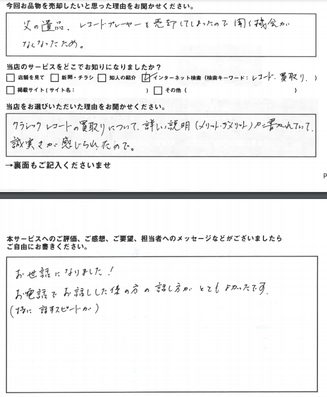 今回お品物を売却したいと思った理由をお聞かせください。
父の遺品。レコードプレーヤーも売却してしまったので聞く機会が
なくなったため。
当店のサービスをどこでお知りになりましたか?
□店頭を見て □新聞・チラシ □知人の紹介 ☑インターネット検索（検索キーワード：レコード 買取り ）
□掲載サイト（サイト名： ） □その他（ ）
当店をお選びいただいた理由をお聞かせください。
クラシックレコードの買取りについて、詳しい説明（メリット・デメリット）が書かれていて、
誠実さが感じられたので。
→裏面もご記入くださいませ
P
本サービスへのご評価、ご感想、ご要望、担当者へのメッセージなどがございましたら
ご自由にお書きください。
お世話になりました！
お電話でお話しした係の方の話し方がとてもよかったです。
（特に話すスピードが）